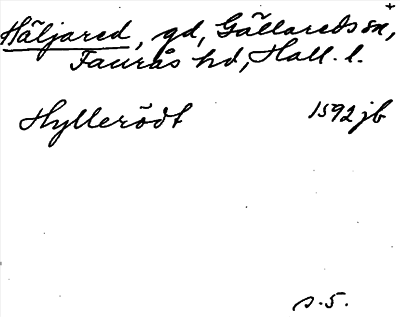 Häljared, gd, Gällareds sn,
Faurås hd, Hall. l.
Hyllerödt 1592 jb
s. 5.